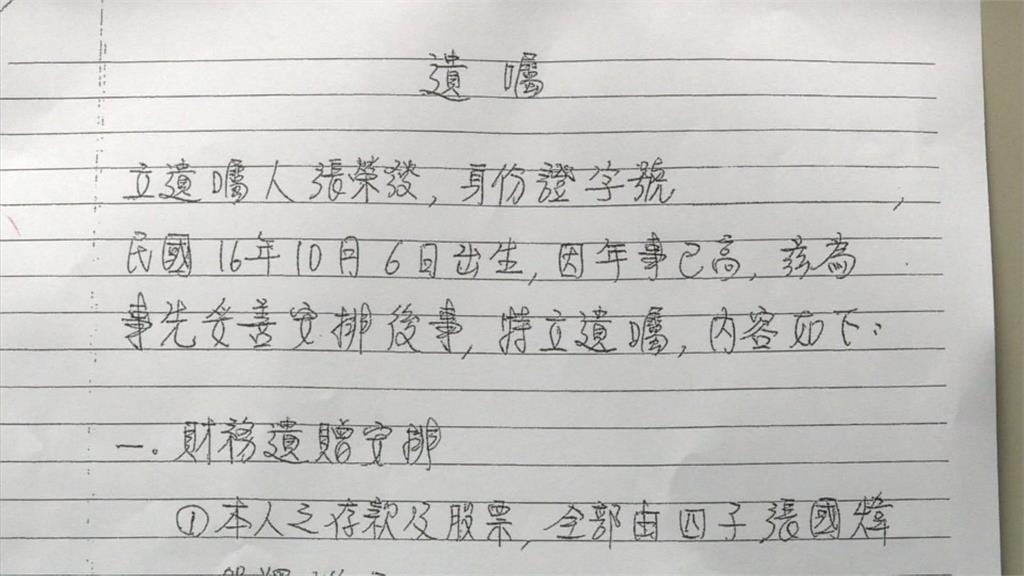 遺囑
立遺囑人張榮發,身份證字號 ,
民國16年10月6日出生,因年事已高,茲為
事先妥善安排後事,特立遺囑,內容如下:
一.財務遺贈安排
①本人之存款及股票,全部由四子張國煒